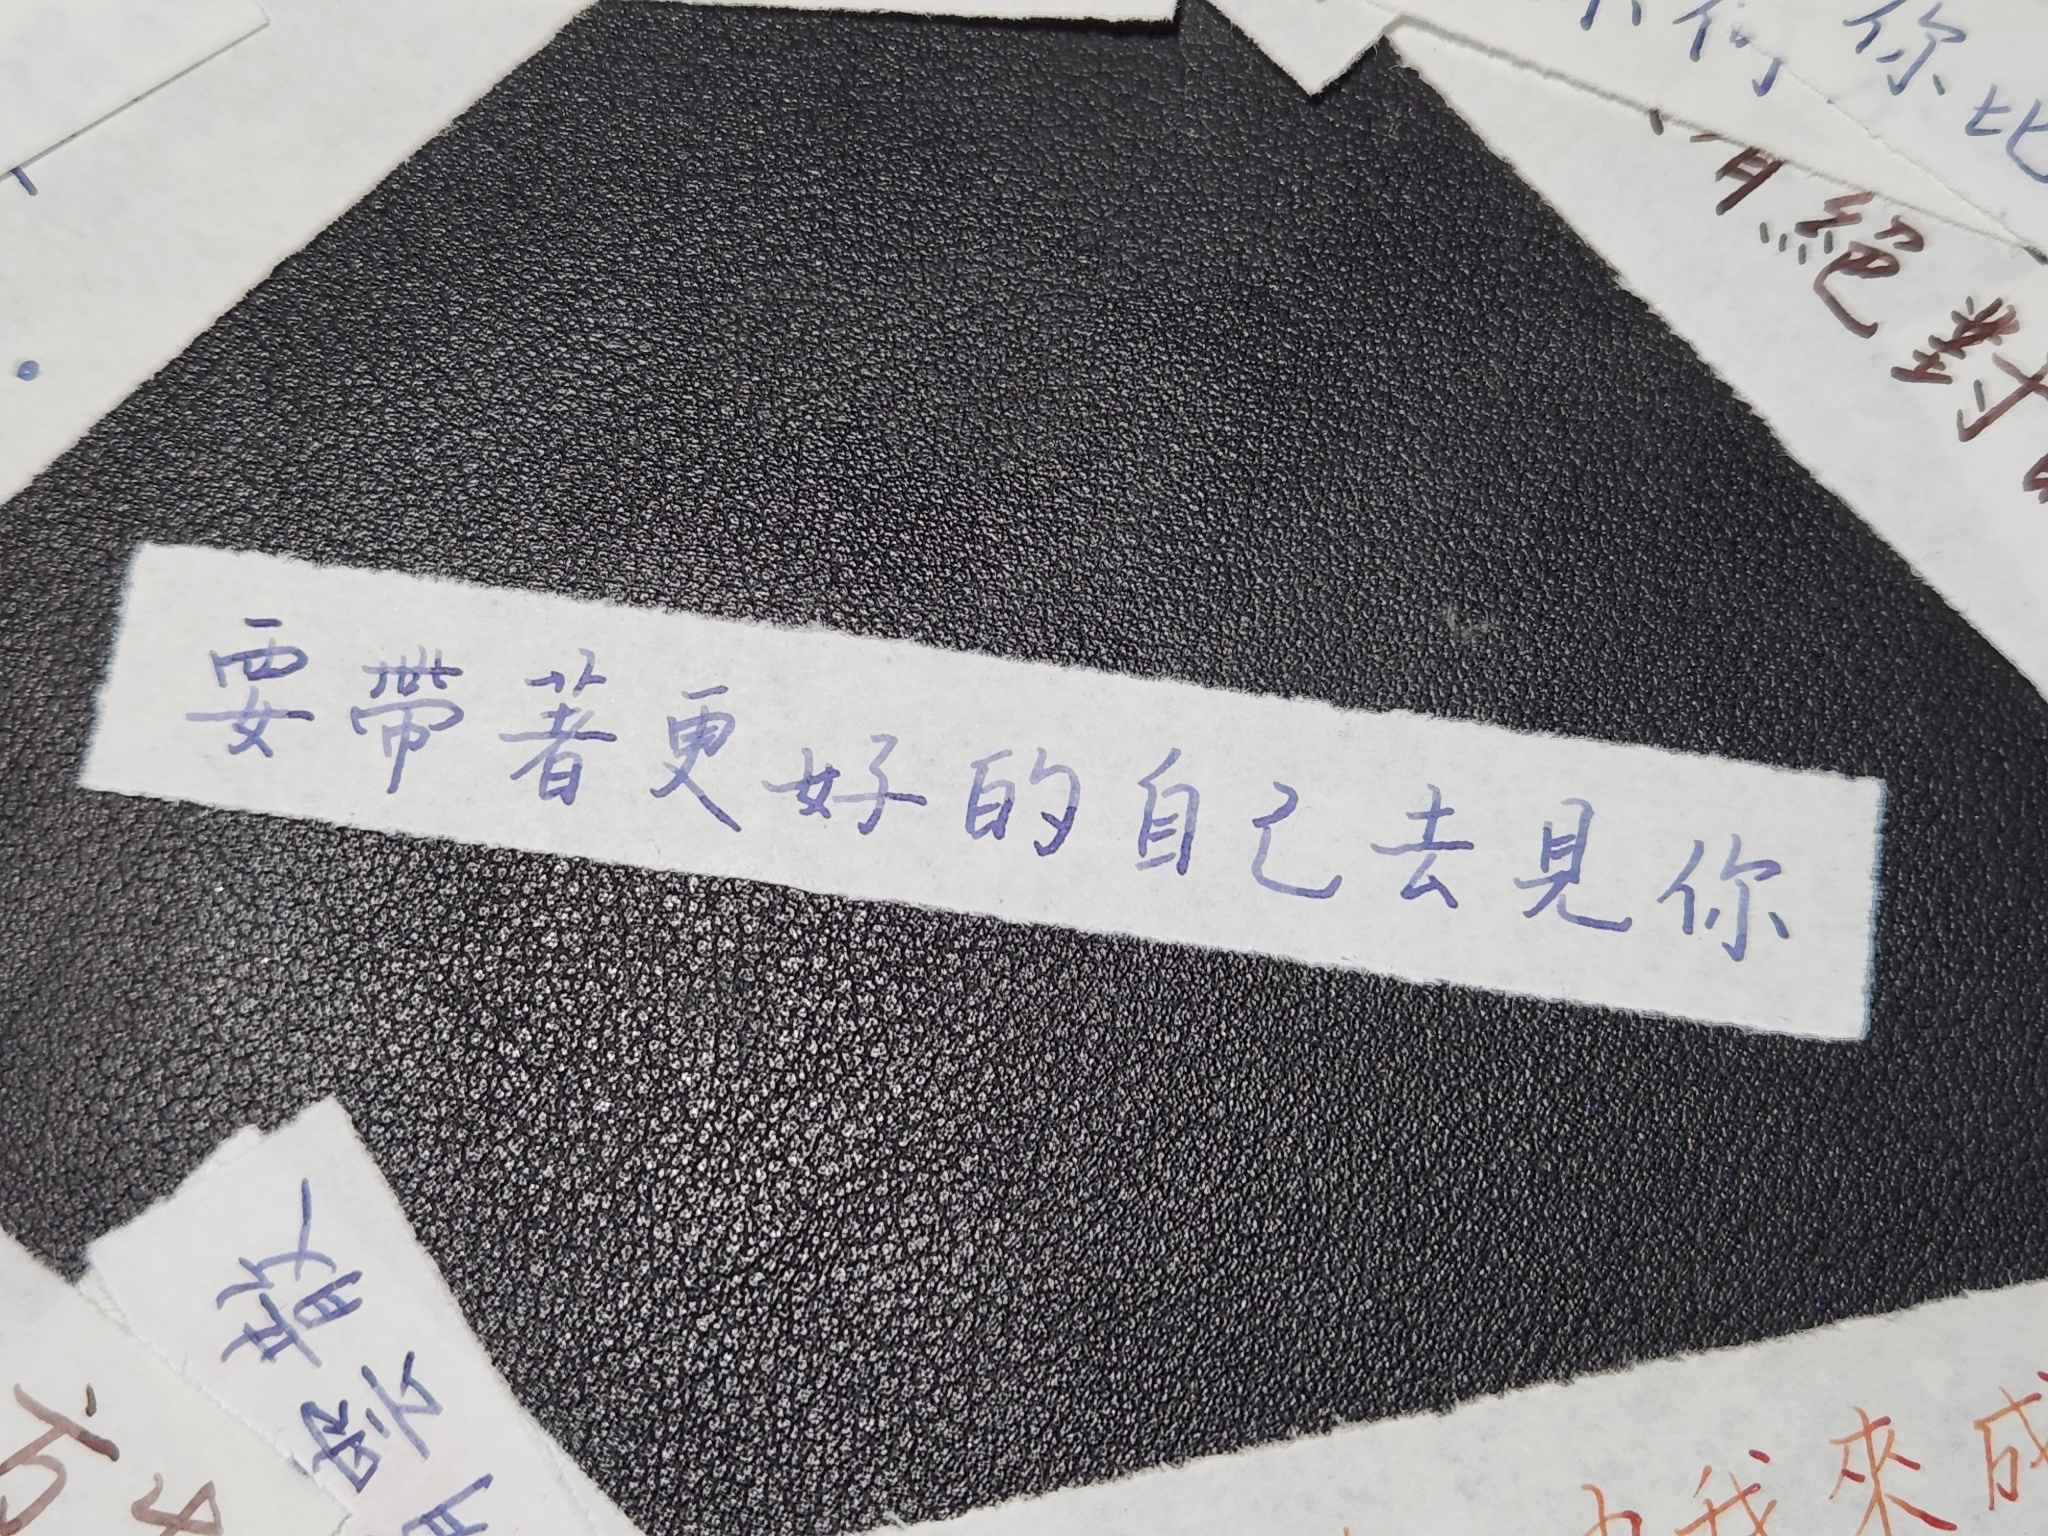 你比
絕對
要帶著更好的自己去見你
散
我來成